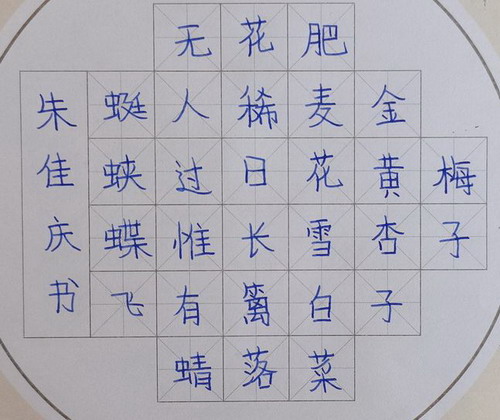 梅子
金黄杏子
肥麦花雪白菜
花稀日长篱落
无人过惟有蜻
蜓蛱蝶飞
朱佳庆书